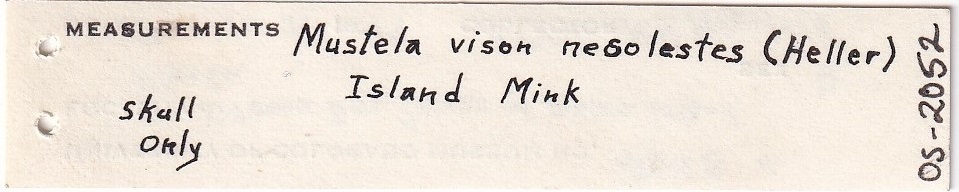 MEASUREMENTS Mustela vison nesolestes (Heller)
Island Mink
Skull
Only
OS-2052